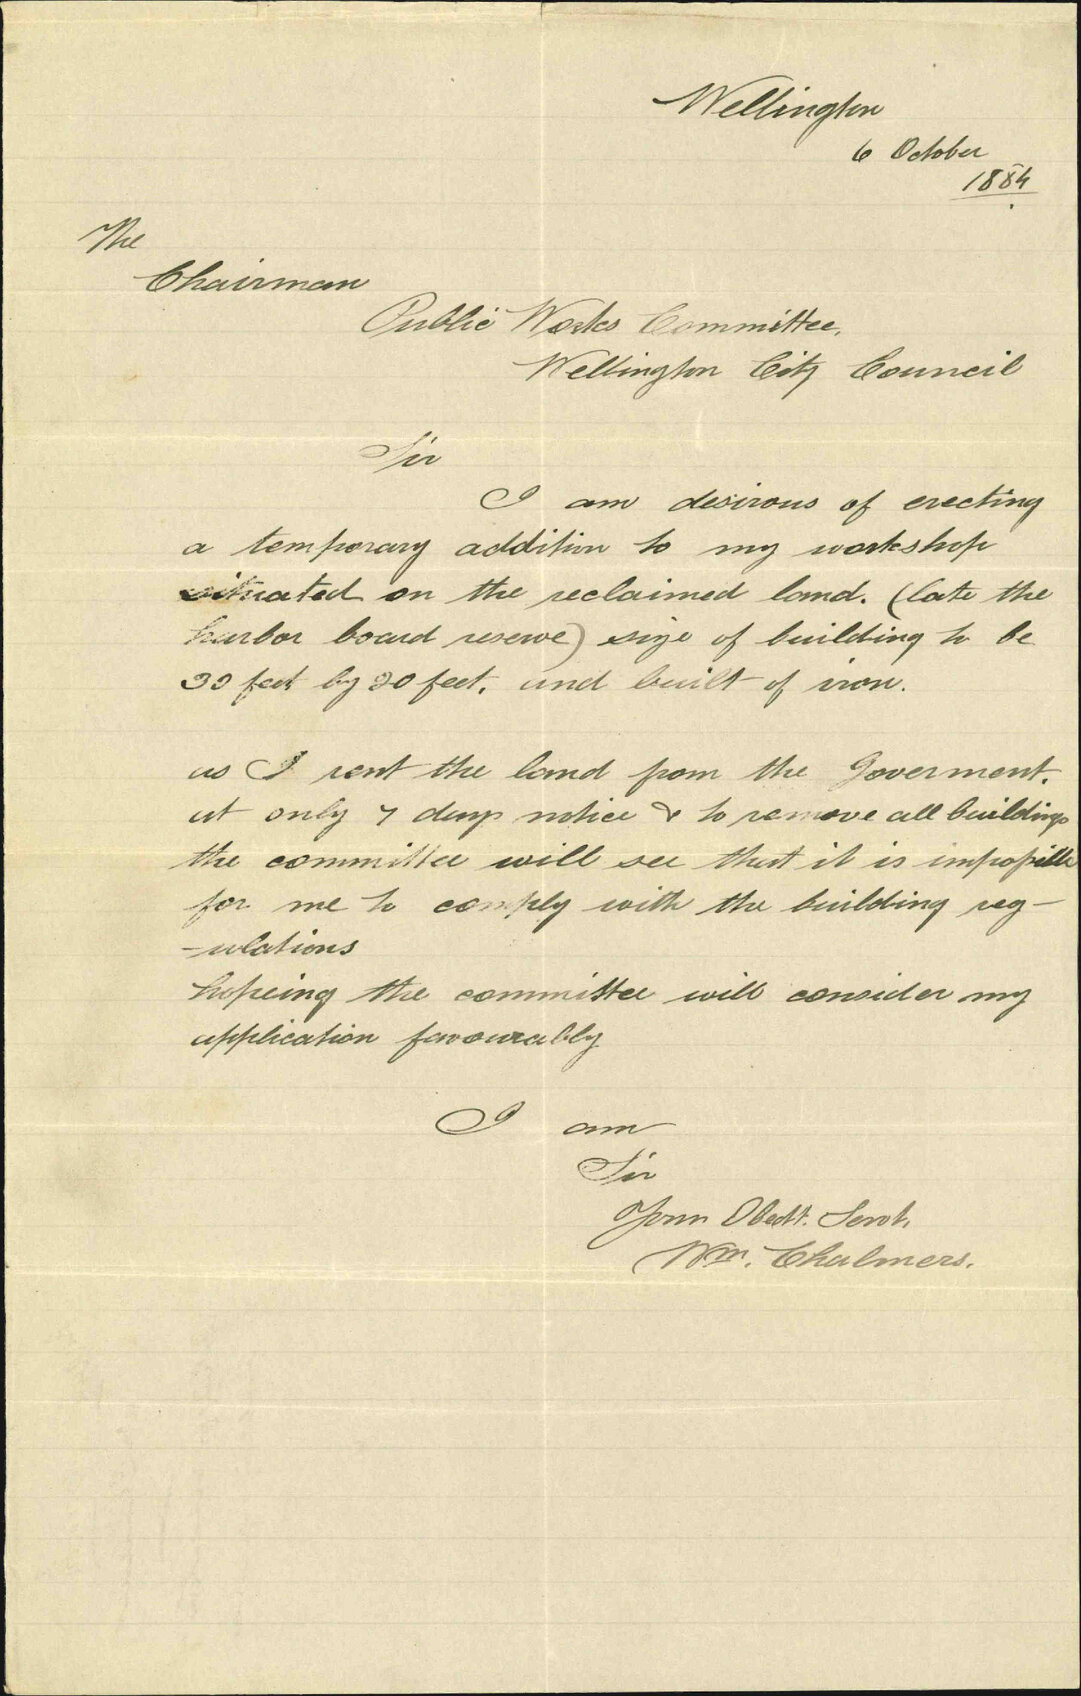 Wellington
6 October
1884
The
Chairman
Public Works Committee,
Wellington City Council
Sir
I am desirous of erecting
a temporary addition to my workshop
situated on the reclaimed land. (late the
harbor board reserve) size of building to be
feet by feet. and built of iron.
as I rent the land from the Goverment.
at only 7 days notice & to remove all buildings
the committee will see that it is impossible
for me to comply with the building reg-
-ulations
hopeing the committee will consider my
application favourably
I am
Sir
Your Obedt. Servt.
Wm. Chalmers.